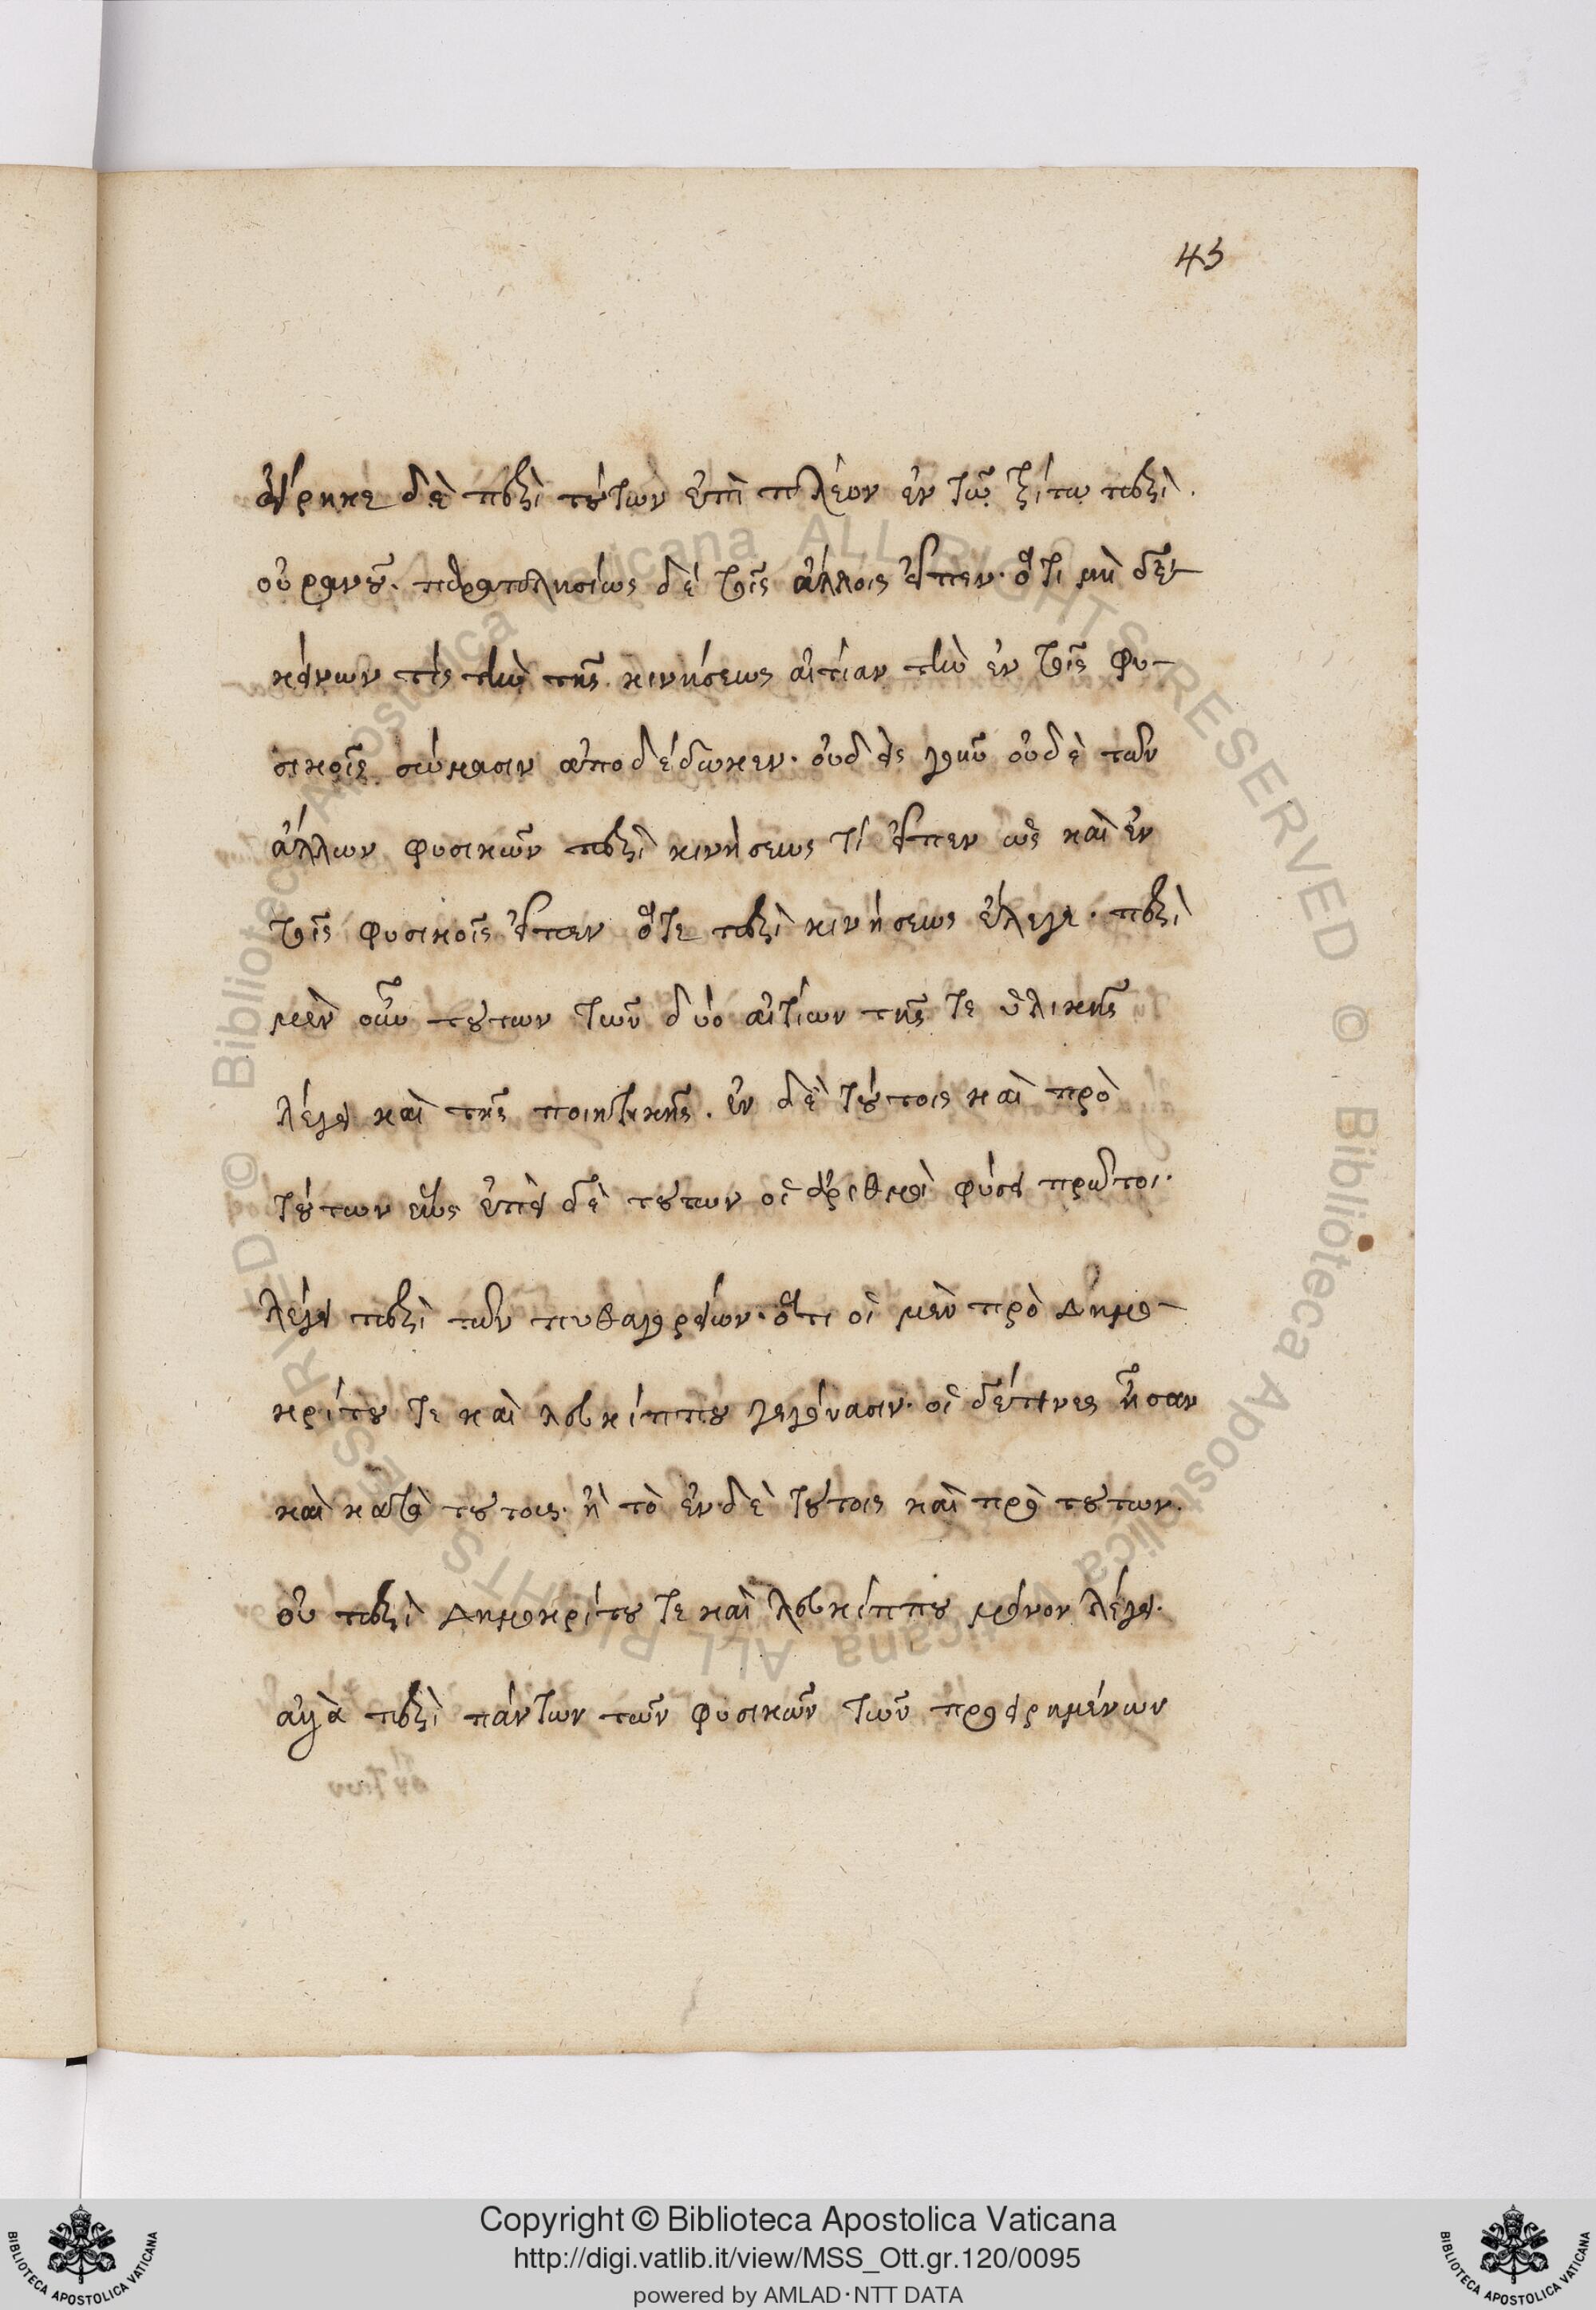 43
εἴρηκε δὲ περὶ τούτων ἐπὶ πλέον ἐν τῷ τρίτῳ περὶ
οὐρανοῦ. παραπλησίως δὲ τοῖς ἄλλοις εἶπεν· ὅτι μὴ δὲ
κείνων τίς τὴν τῆς κινήσεως αἰτίαν τὴν ἐν τοῖς φυ-
σικοῖς σώμασιν ἀποδέδωκεν. οὐδεὶς γοῦν οὐδὲ τῶν
ἄλλων φυσικῶν περὶ κινήσεως τί εἶπεν ὡς καὶ ἐν
τοῖς φυσικοῖς εἶπεν ὅτε περὶ κινήσεως ἔλεγε. περὶ
μὲν οὖν τούτων τῶν δύο αἰτίων τῆς τε ὑλικῆς
λέγει καὶ τῆς ποιητικῆς. ἐν δὲ τούτοις καὶ πρὸ
τούτων ἕως ἐπεὶ δὲ τούτων οἱ ἀριθμοὶ φύσει πρῶτοι.
λέγει περὶ τῶν πυθαγορείων. ὅτι οἱ μὲν πρὸ Δημο-
κρίτου τε καὶ λευκίππου γεγόνασιν. οἱ δέ τινες ἦσαν
καὶ κατὰ τούτοις. ἢ τὸ ἐν δὲ τούτοις καὶ πρὸ τούτων.
οὐ περὶ Δημοκρίτου τε καὶ λευκίππου μόνον λέγει.
ἀλλὰ περὶ πάντων τῶν φυσικῶν τῶν προειρημένων
Copyright © Biblioteca Apostolica Vaticana
http://digi.vatlib.it/view/MSS_Ott.gr.120/0095
powered by AMLAD·NTT DATA